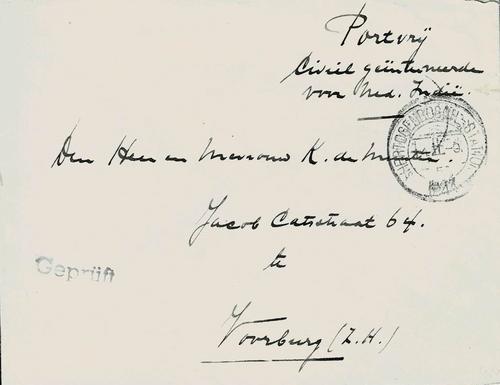 Portvrij
Civiel geïnterneerde
voor Ned. Indië.
Den Heer en Mevrouw K. de
Jacob Catsstraat 64.
te
Voorburg (Z.H.)
Geprüft